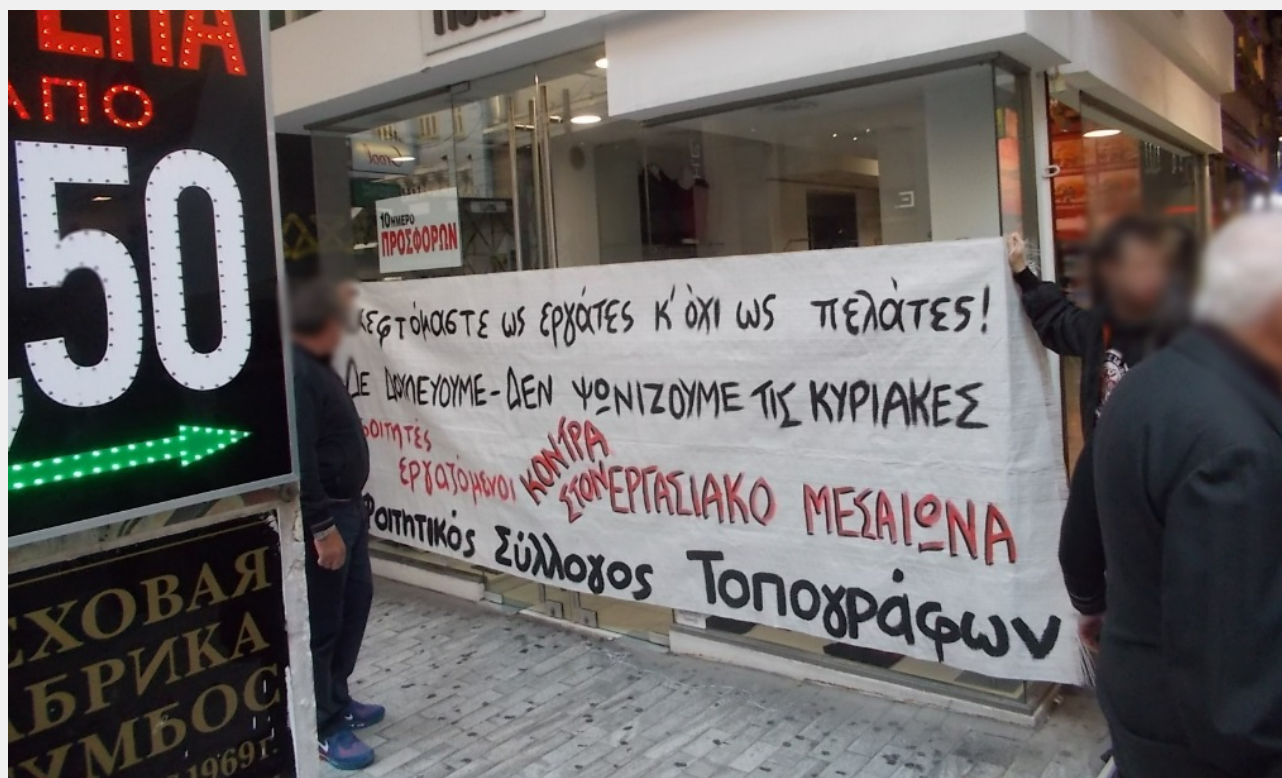 ΑΠΟ
50
10ΗΜΕΡΟ
ΠΡΟΣΦΟΡΩΝ
ως εργάτες κ' όχι ως πελάτες!
ΔΕ ΔΟΥΛΕΥΟΥΜΕ - ΔΕΝ ΨΩΝΙΖΟΥΜΕ ΤΙΣ ΚΥΡΙΑΚΕΣ
εργαζόμενοι ΚΟΝΤΡΑ
ΣΤΟΝ ΕΡΓΑΣΙΑΚΟ ΜΕΣΑΙΩΝΑ
Φοιτητικός Σύλλογος Τοπογράφων
1969г.